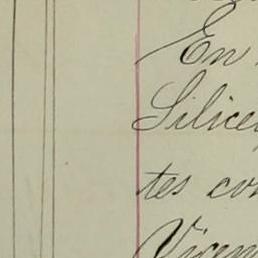 En
Silice
tes con
Vicen